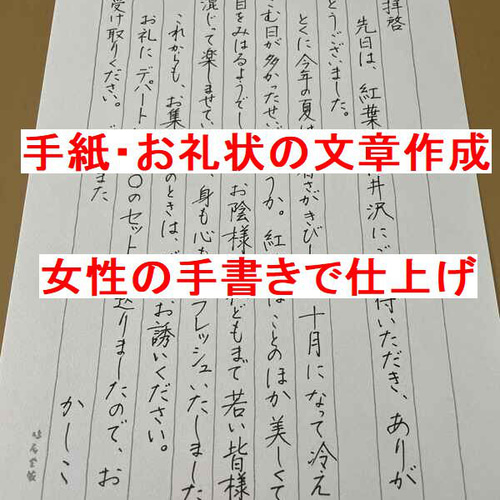 手紙・お礼状の文章作成
女性の手書きで仕上げ
拝啓
先日は、紅葉 井沢にご 待いただき、ありが
とうございました。
とくに今年の夏は さがきびし 十月になって冷え
こむ日が多かったせい うか。紅 はことのほか美しくて
目をみはるようでし お陰様 どもまで若い皆様
混じって楽しませてい 、身も心も フレッシュいたしました
これからも、お集 のときは、 お誘いください。
お礼に、デパート ○のセット 送りましたので、お
受け取りください。 また
かしこ